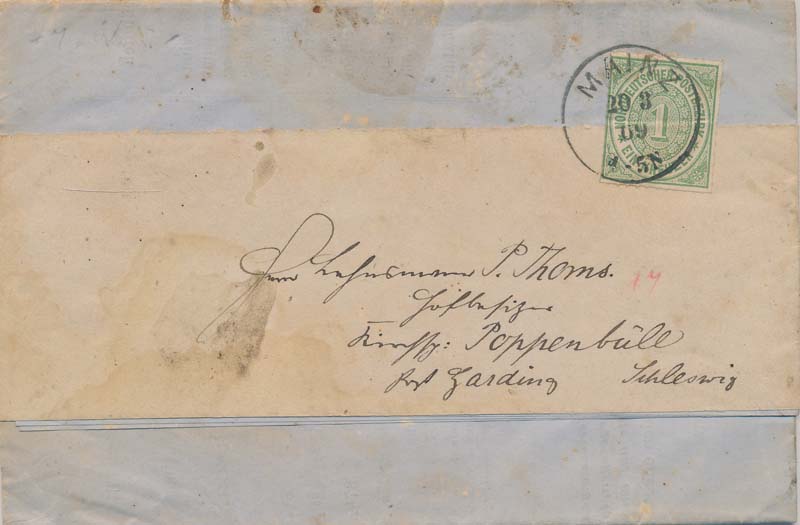 MAINZ
20 3
69
4-5N
NORDDEUTSCHER POSTBEZIRK
1
EIN GROSCHEN
Herrn Lehnsmann P. Thoms.
Hofbesitzer
Kirchsp: Poppenbüll
Post Garding Schleswig